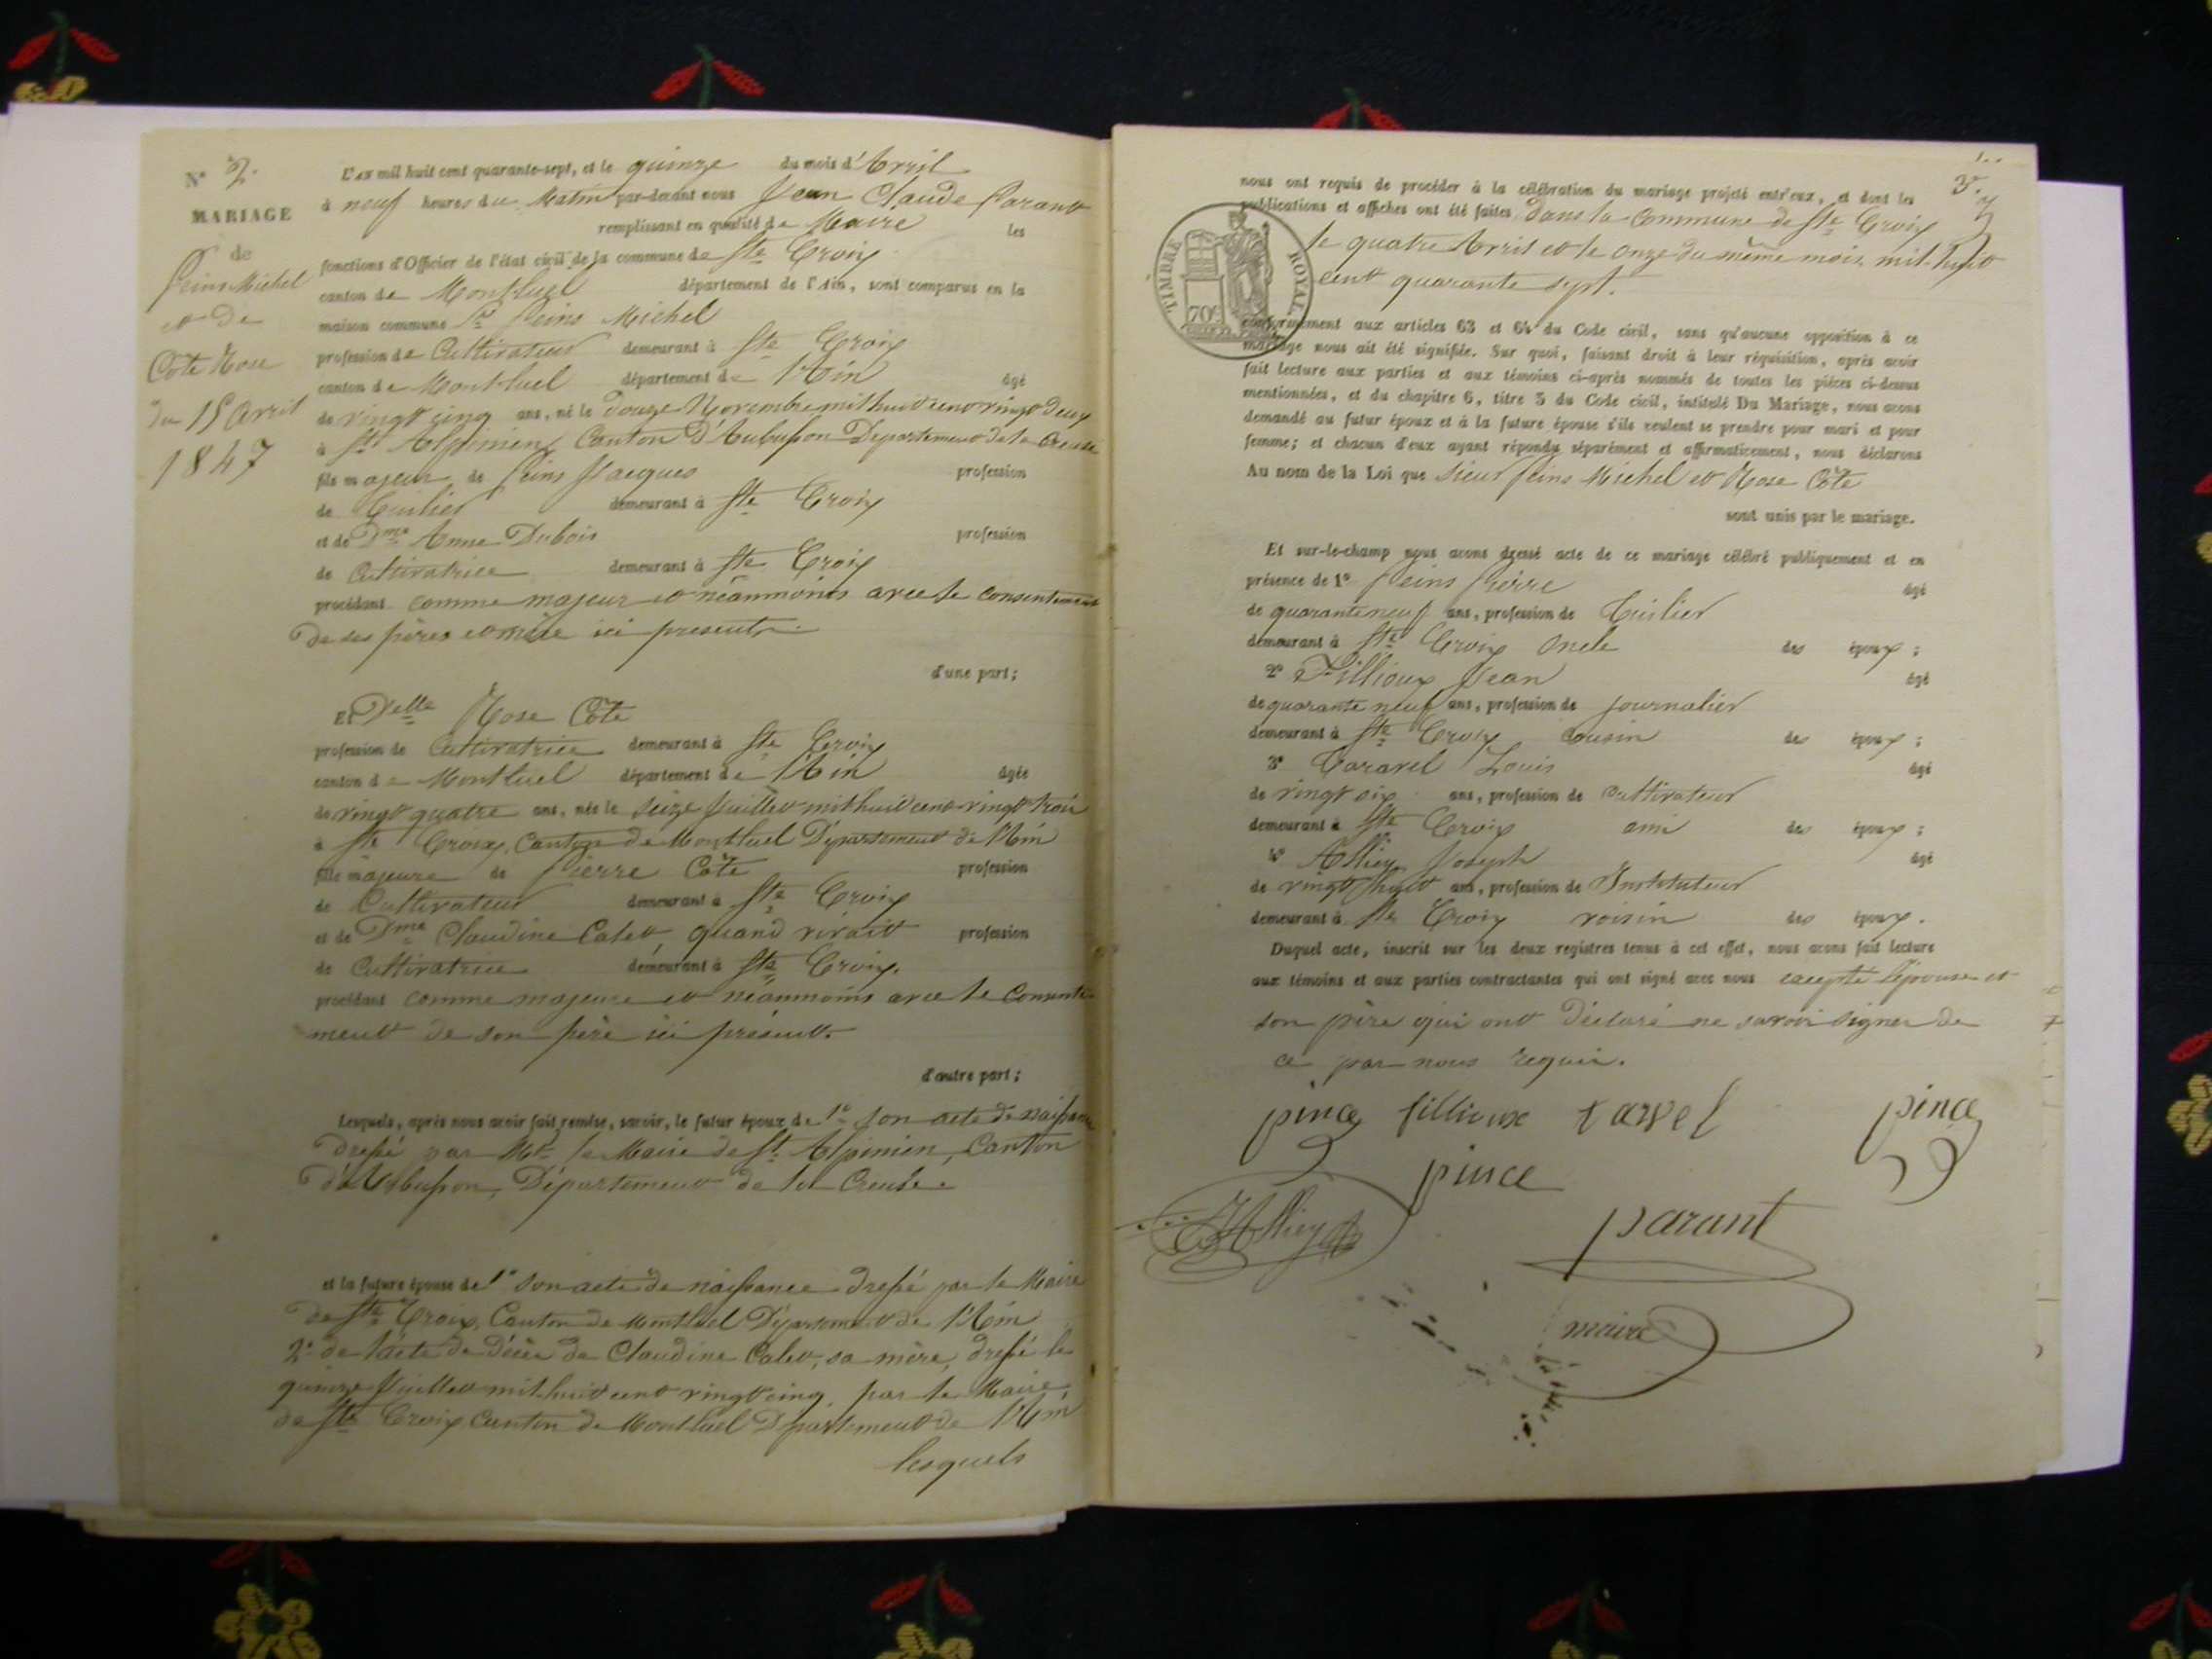 N° 2.
MARIAGE
de
Peins Michel
et de
Côte Rose
du 15 Avril
1847
L'AN mil huit cent quarante-sept, et le quinze du mois d'Avril
à neuf heures du Matin par-devant nous Jean Claude Parant
remplissant en qualité de Maire les
fonctions d'Officier de l'état civil de la commune de Ste Croix
canton de Montluel département de l'Ain, sont comparus en la
maison commune Sr Peins Michel
profession de Cultivateur demeurant à Ste Croix
canton de Montluel département de l'Ain âgé
de vingt cinq ans, né le douze Novembre mil huit cent vingt deux
à St Alpinien, Canton D'Aubusson Département de la Creuse
fils majeur de Peins Jacques profession
de Tuilier demeurant à Ste Croix
et de Dme Anne Dubois profession
de Cultivatrice demeurant à Ste Croix
procédant comme majeur et néanmoins avec le consentement
de ses pères et mère ici présents.
d'une part;
Et Delle Rose Côte
profession de Cultivatrice demeurant à Ste Croix
canton de Montluel département de l'Ain âgée
de vingt quatre ans, née le seize Juillet mil huit cent vingt trois
à Ste Croix, Canton de Montluel Département de l'Ain
fille majeure de Pierre Côte profession
de Cultivateur demeurant à Ste Croix
et de Dme Claudine Calet, quand vivait profession
de Cultivatrice demeurant à Ste Croix.
procédant comme majeure et néanmoins avec le consente-
ment de son père ici présent.
d'autre part;
Lesquels, après nous avoir fait remise, savoir, le futur époux de 1° son acte de naissance
dressé par Mr le Maire de St Alpinien, Canton
d'Aubusson, Département de la Creuse.
et la future épouse de 1° son acte de naissance dressé par le Maire
de Ste Croix, Canton de Montluel Département de l'Ain
2° de l'acte de décès de Claudine Calet, sa mère, dressé le
quinze Juillet mil huit cent vingt cinq, par le Maire
de Ste Croix Canton de Montluel Département de l'Ain
lesquels
3.
nous ont requis de procéder à la célébration du mariage projeté entr'eux, et dont les
publications et affiches ont été faites dans la commune de Ste Croix
le quatre Avril et le onze du même mois mil huit
cent quarante sept.
TIMBRE ROYAL
70c
conformément aux articles 63 et 64 du Code civil, sans qu'aucune opposition à ce
mariage nous ait été signifiée. Sur quoi, faisant droit à leur réquisition, après avoir
fait lecture aux parties et aux témoins ci-après nommés de toutes les pièces ci-dessus
mentionnées, et du chapitre 6, titre 5 du Code civil, intitulé Du Mariage, nous avons
demandé au futur époux et à la future épouse s'ils veulent se prendre pour mari et pour
femme; et chacun d'eux ayant répondu séparément et affirmativement, nous déclarons
Au nom de la Loi que Sieur Peins Michel et Rose Côte
sont unis par le mariage.
Et sur-le-champ nous avons dressé acte de ce mariage célébré publiquement et en
présence de 1° Peins Pierre âgé
de quarante neuf ans, profession de Tuilier
demeurant à Ste Croix oncle des époux;
2° Fillioux Jean âgé
de quarante neuf ans, profession de journalier
demeurant à Ste Croix cousin des époux;
3° Taravel Louis âgé
de vingt six ans, profession de cultivateur
demeurant à Ste Croix ami des époux;
4° Alliey Joseph âgé
de vingt huit ans, profession de Instituteur
demeurant à Ste Croix voisin des époux.
Duquel acte, inscrit sur les deux registres tenus à cet effet, nous avons fait lecture
aux témoins et aux parties contractantes qui ont signé avec nous excepté l'épouse et
son père qui ont déclaré ne savoir signer de
ce par nous requis.
pince fillioux tarvel pince
pince
Alliey
parant
maire